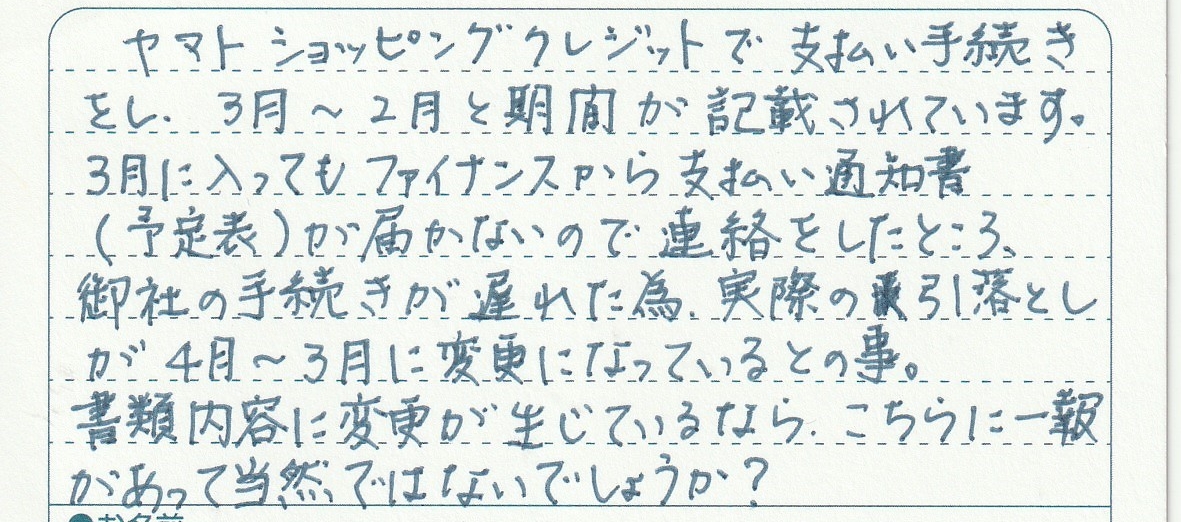 ヤマトショッピングクレジットで支払い手続き
をし、3月～2月と期間が記載されています。
3月に入ってもファイナンスから支払い通知書
(予定表)が届かないので連絡をしたところ、
御社の手続きが遅れた為、実際の引落とし
が4月～3月に変更になっているとの事。
書類内容に変更が生じているなら、こちらに一報
があって当然ではないでしょうか?